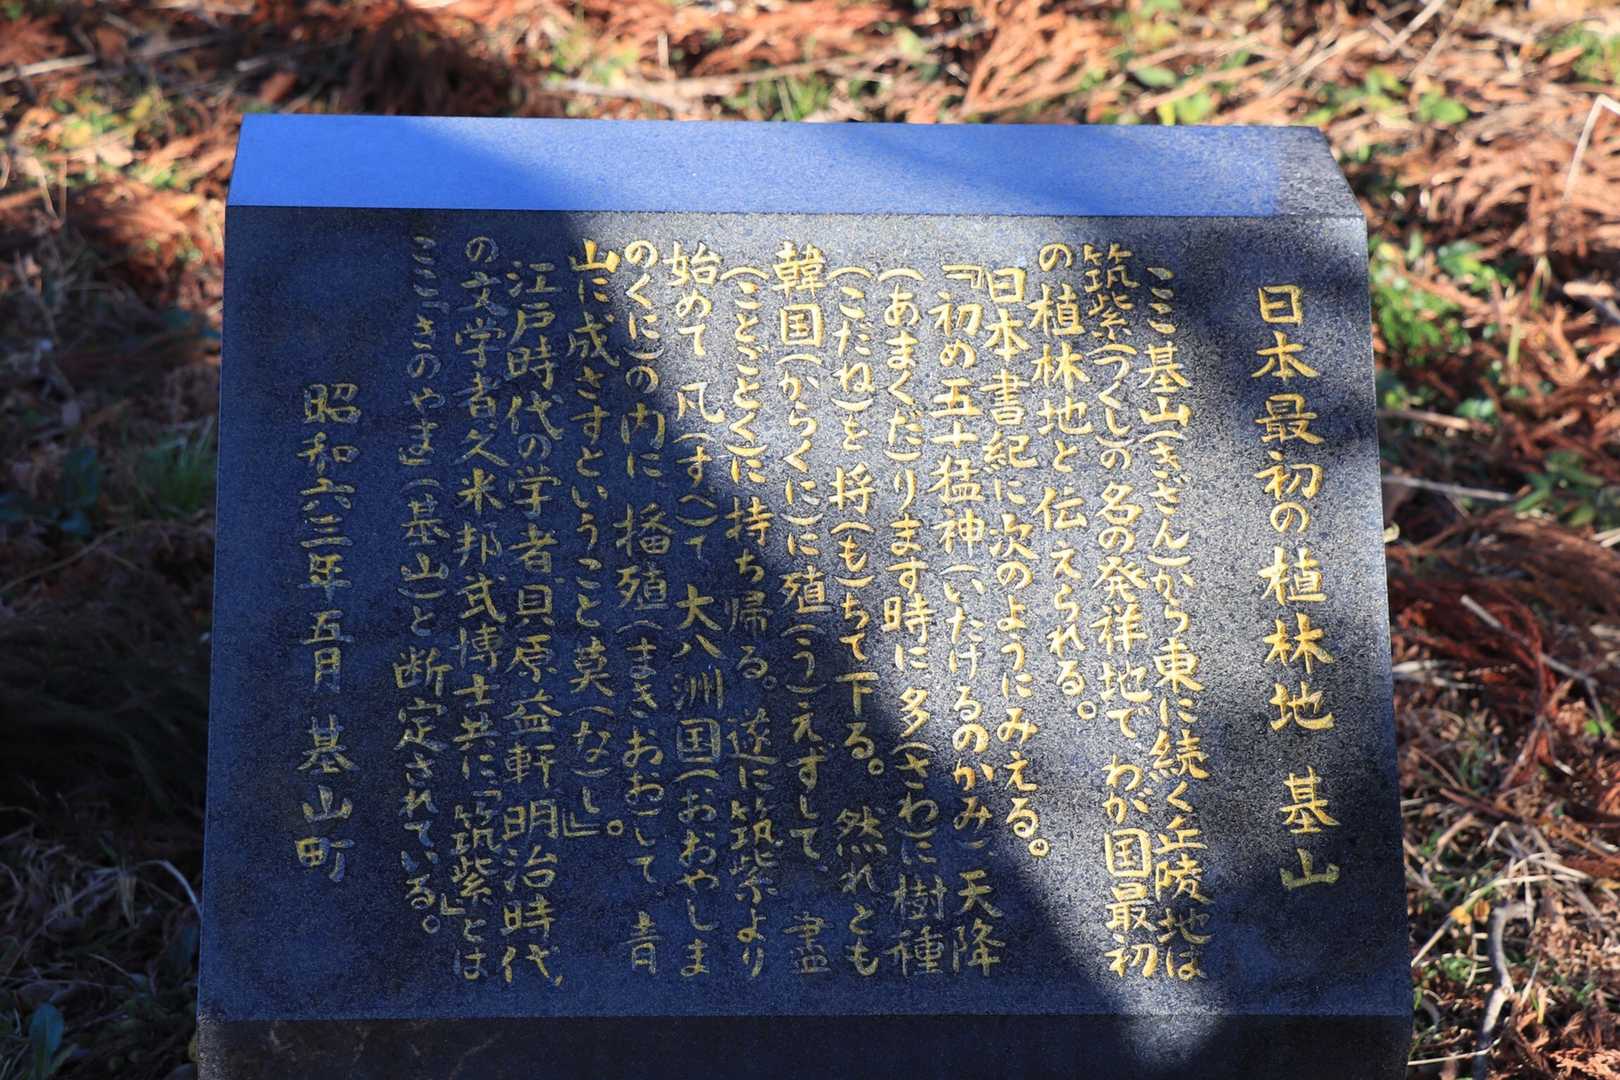 日本最初の植林地 基山
ここ基山(きざん)から東に続く丘陵地は
筑紫(つくし)の名の発祥地で、わが国最初
の植林地と伝えられる。
日本書紀に次のようにみえる。
『初め五十猛神(いたけるのかみ)、天降
(あまくだ)ります時に多(さわ)に樹種
(こだね)を将(も)ちて下る。然れども
韓国(からくに)に殖(う)えずして、盡
(ことごとく)に持ち帰る。遂に筑紫より
始めて凡(すべ)て大八洲国(おおやしま
のくに)の内に播殖(まきおお)して 青
山に成さずということ莫(な)し』。
江戸時代の学者貝原益軒、明治時代、
の文学者久米邦武博士共に「筑紫」とは
ここ「きのやま」(基山)と断定されている。
昭和六三年五月 基山町